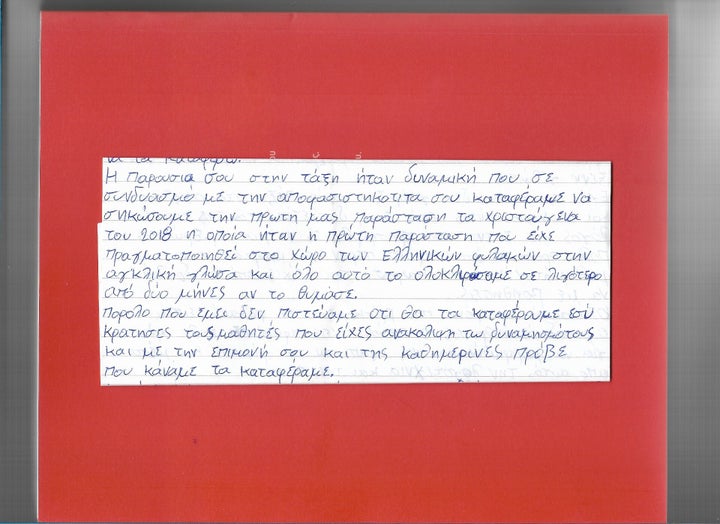 να τα καταφέρω.
Η παρουσία σου στην τάξη ήταν δυναμική που σε
συνδυασμό με την αποφασιστηκότιτα σου καταφέραμε να
σηκώσουμε την πρωτη μας παράσταση τα χριστούγενα
του 2018 η οποία ήταν η πρώτη παράσταση που είχε
πραγματοποιηθεί στο χώρο των Ελληνικών φυλακών στην
αγκλική γλώσα και όλο αυτό το ολοκλιρόσαμε σε λιγότερο
από δύο μήνες αν το θυμάσε.
Πορόλο που εμεις δεν πιστεύαμε οτι θα τα καταφέραμε εσύ
κρατησες τους μαθητές που είχες ανακαλιψη τω δυναμησμότους
και με την επιμονή σου και της καθημερινές πρόβε
που κάναμε τα καταφέραμε.